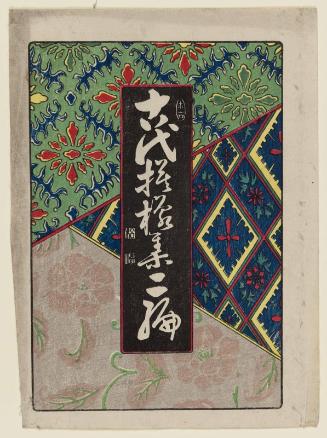 古代模様集二編